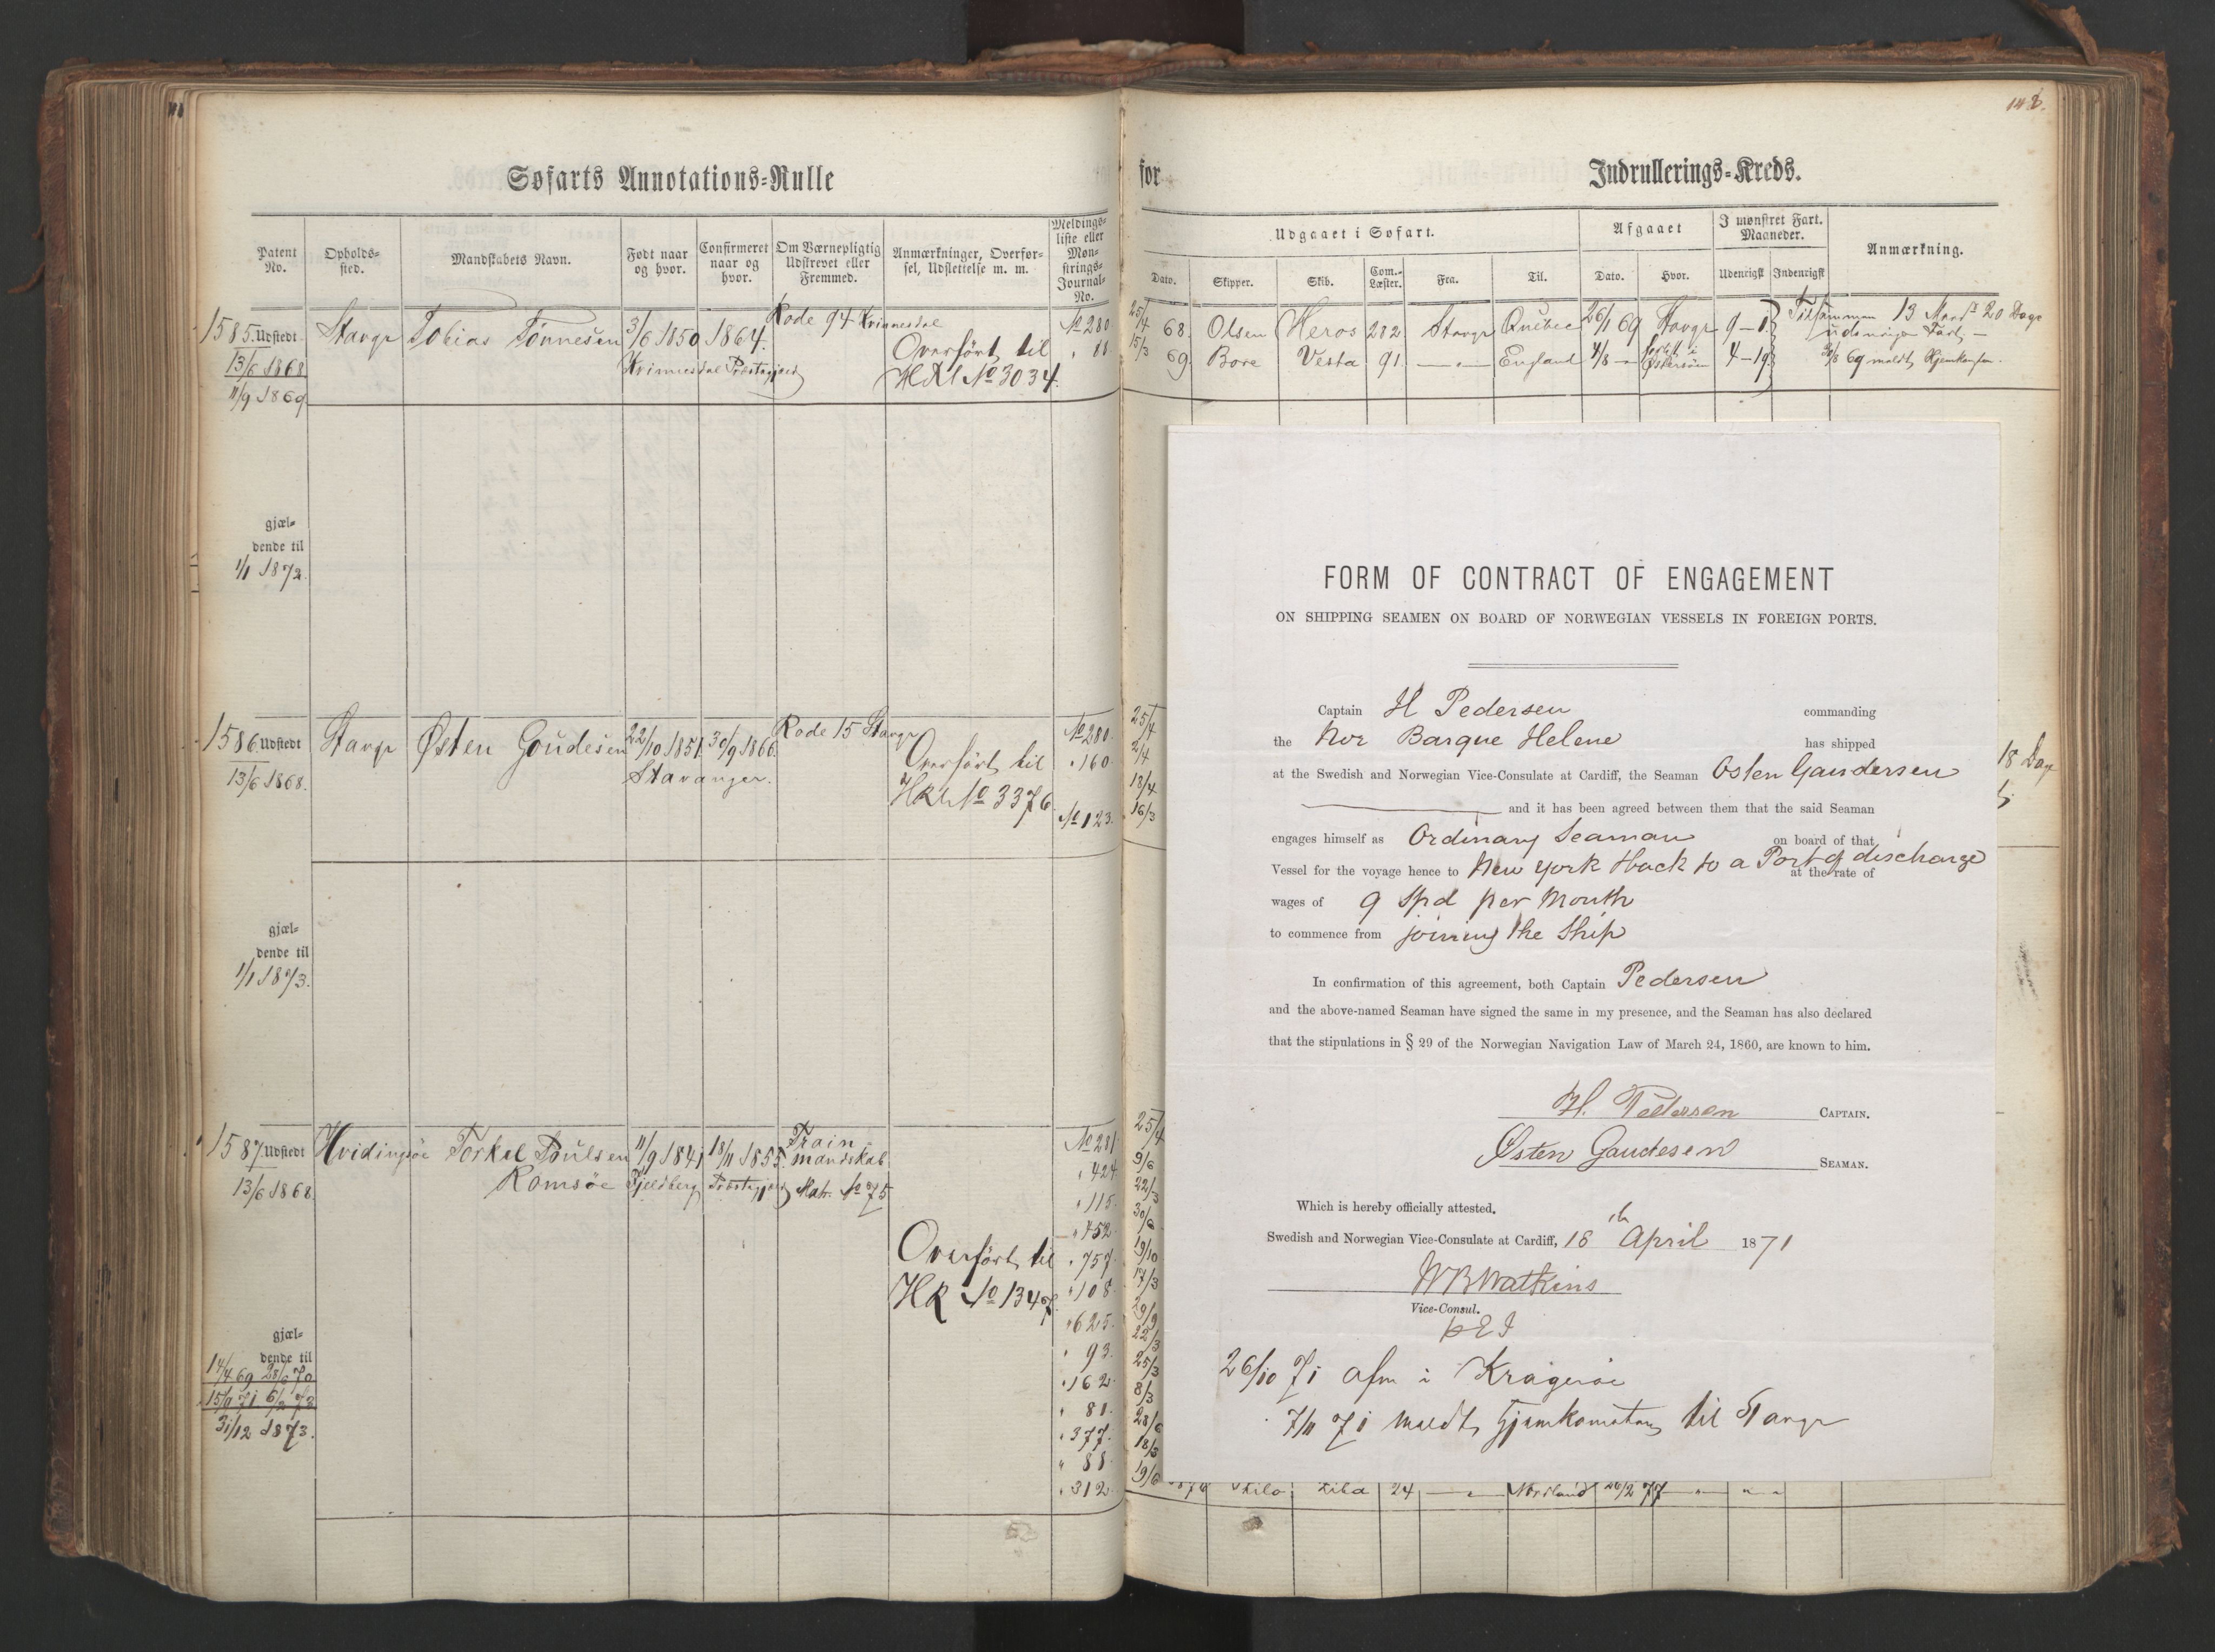 Søfarts Annotations-Rulle
Patent No.
Opholds-sted.
Mandskabets Navn.
Født naar og hvor.
Confirmeret naar og hvor.
Om Værnepligtig Udskrevet eller Fremmed.
Anmærkninger, Overførsel, Udslettelse m. m.
Meldings-liste eller Møn-strings-Journal-No.
1585. Udstedt
13/6 1868
11/9 1869
Stavgr
Tobias Tønnesen
3/6 1850
1864.
Rode 94
Overført til
No 280
" 88.
gjæl-
dende til
1/1 1872.
1586. Udstedt
13/6 1868.
Stavgr
Østen Goudesen
22/10 1851.
30/9 1866.
Stavanger.
Rode 15 Stavgr
Overført til
No 3376
No 280.
" 160.
No 123.
gjæl-
dende til
1/1 1873.
1587. Udstedt
13/6 1868
Hvidingsöe
Torkel Poulsen
Romsöe
11/9 1841
18/11 1855.
Fjeldberg Præstegjeld
Train
mandskab
Matr. No 75
Overført til
HR No 1347.
No 281.
" 424
" 115.
" 452.
" 757.
" 108.
" 625.
" 93.
" 162.
" 81.
" 377.
" 88.
" 312.
gjæl-
dende til
14/4 69 28/6 70
31/12 1873.
for
Indrullerings-Kreds.
142.
Udgaaet i Søfart.
Afgaaet
I mønstret Fart. Maaneder.
Anmærkning.
Dato.
Skipper.
Skib.
Com.-Læster.
Fra.
Til.
Dato.
Hvor.
Udenrigsk
Indenrigsk
25/4 68. Olsen Heros 282 Stavgr Quebec 26/1 69 Stavgr 9-1.
Tilsammen 13 Maad 20 Dage
15/3 69. Bore Vesta 91. England 4/8 forlist i Østersøen 4-19
30/8 69 meldt Hjemkomsten.
25/4
2/4
13/4
16/3
18 Dage
FORM OF CONTRACT OF ENGAGEMENT
ON SHIPPING SEAMEN ON BOARD OF NORWEGIAN VESSELS IN FOREIGN PORTS.
Captain H Pedersen commanding
the Nor Barque Helene has shipped
at the Swedish and Norwegian Vice-Consulate at Cardiff, the Seaman Osten Gaudersen
and it has been agreed between them that the said Seaman
engages himself as Ordinary Seaman on board of that
Vessel for the voyage hence to New York & back to a Port of discharge at the rate of
wages of 9 Spd per Month
to commence from joining the Ship
In confirmation of this agreement, both Captain Pedersen
and the above-named Seaman have signed the same in my presence, and the Seaman has also declared
that the stipulations in § 29 of the Norwegian Navigation Law of March 24, 1860, are known to him.
H. Pedersen CAPTAIN.
Østen Gaudesen SEAMAN.
Which is hereby officially attested.
Swedish and Norwegian Vice-Consulate at Cardiff, 18th April 1871
WB Watkins
Vice-Consul.
26/10 71 afm i Krageröe
7/11 71 meldt Hjemkomsten til Stavgr
25/4
9/6
22/3
30/8
19/10
17/3
29/9
22/3
25/3
8/3
28/6
18/3
19/6
24 Nordland 26/2 77